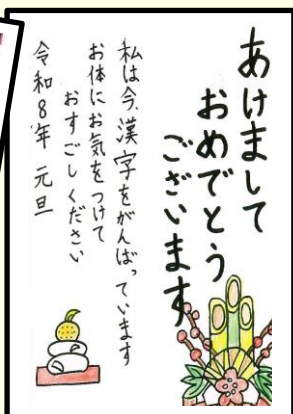 あけまして
おめでとう
ございます
私は今、漢字をがんばっています
お体にお気をつけて
おすごしください
令和8年 元旦